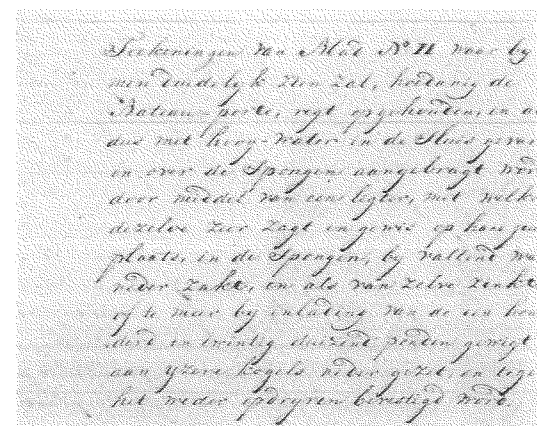 Teekeningen van Blad N° II waar by
men duidelyk zien zal, hoedanig de
Bateau-porte, regt opgehouden, en a
dus met hoog-water in de Sluis gevar
en over de Spongen aangebragt word
door middel van een legter, met welke
dezelve zeer zagt en gewis op haar
plaats, in de Spongen, by vallend wa
neder zakt, en als van zelve zinkt
of te meer by inlading van de een hon
derd en twintig duizend ponden gewigt
aan yzere kogels neder gezet, en tege
het weder opdryven bevestigd word.